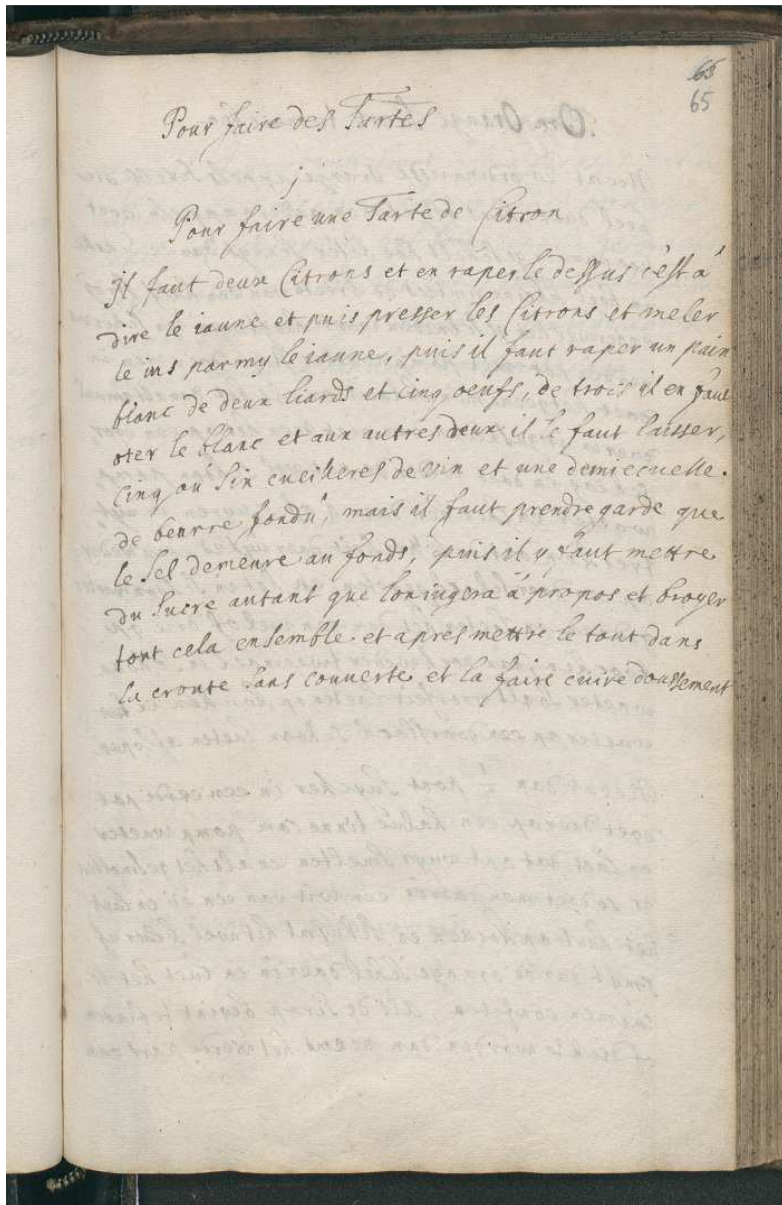 65
65
Pour faire des Tartes
j
Pour faire une Tarte de Citron
Jl faut deux Citrons et en raper le dessus c'est a
dire le iaune et puis presser les Citrons et meler
le ius parmy le iaune, puis il faut raper un pain
blanc de deux liards et cinq oeufs, de trois il en faut
oter le blanc et aux autres deux il le faut laisser,
cinq ou six cueilleres de vin et une demi ecuelle
de beurre fondu, mais il faut prendre garde que
le sel demeure au fonds, puis il y faut mettre
du sucre autant que lon iugera à propos et broyer
tout cela ensemble et apres mettre le tout dans
la croute sans couverte et la faire cuire doussement